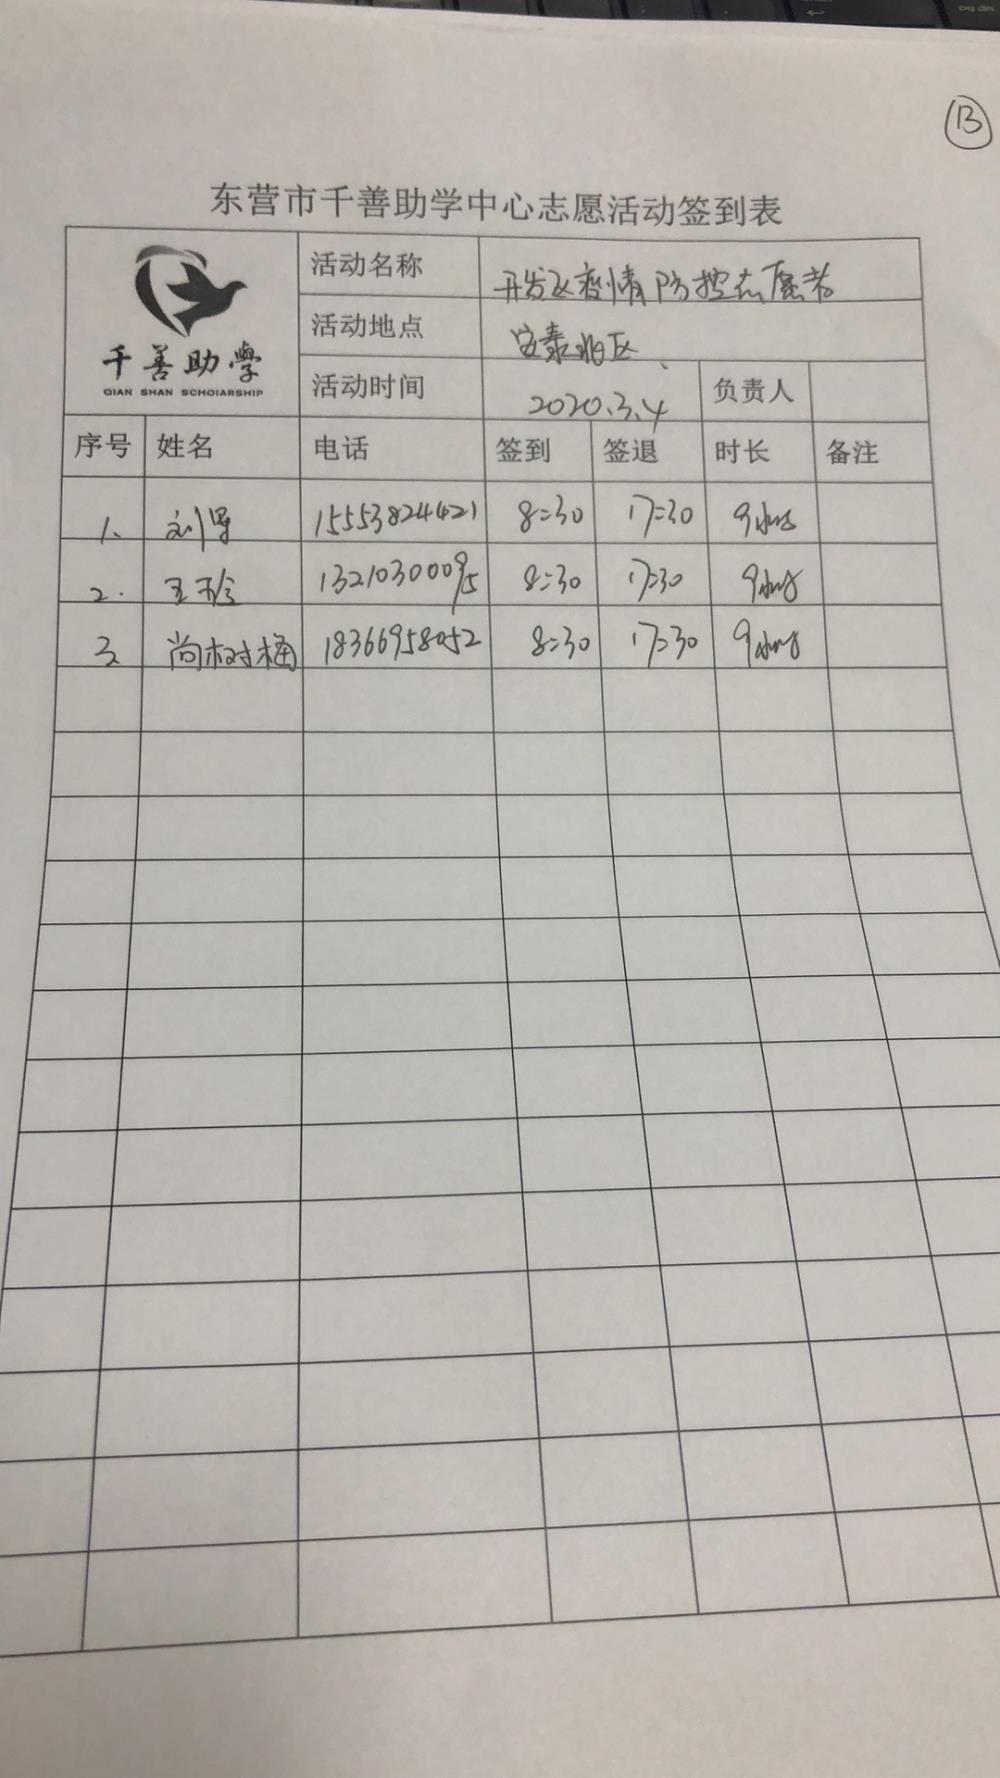 13
东营市千善助学中心志愿活动签到表
千善助學
QIAN SHAN SCHOIARSHIP
活动名称 开发区疫情防控志愿者
活动地点 安泰北区
活动时间 2020.3.4 负责人
序号 姓名 电话 签到 签退 时长 备注
1. 刘 15553824421 8:30 17:30 9
2. 王玲 13210300095 8:30 17:30 9
3 尚树桶 18366958052 8:30 17:30 9